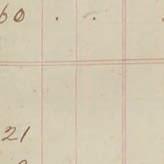 60 . .
21